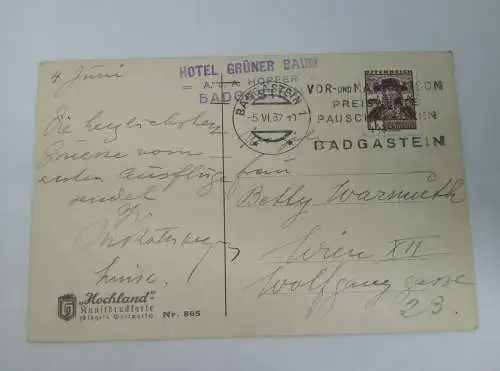 4 Juni
HOTEL GRÜNER BAUM
A. u. A HOPFER
BADGASTEIN
BADGASTEIN 1
-5.VI.37
VOR- und NACHSAISON
PREIS
PAUSCH
BADGASTEIN
ÖSTERREICH
Die herzlichsten
Grüsse vom
ersten Ausfluge
sendet
Luise.
Frau
Betty Warmuth
Wien XII
Wolfganggasse
23.
"Hochland"
Kunstdruckkarte
Nr. 865